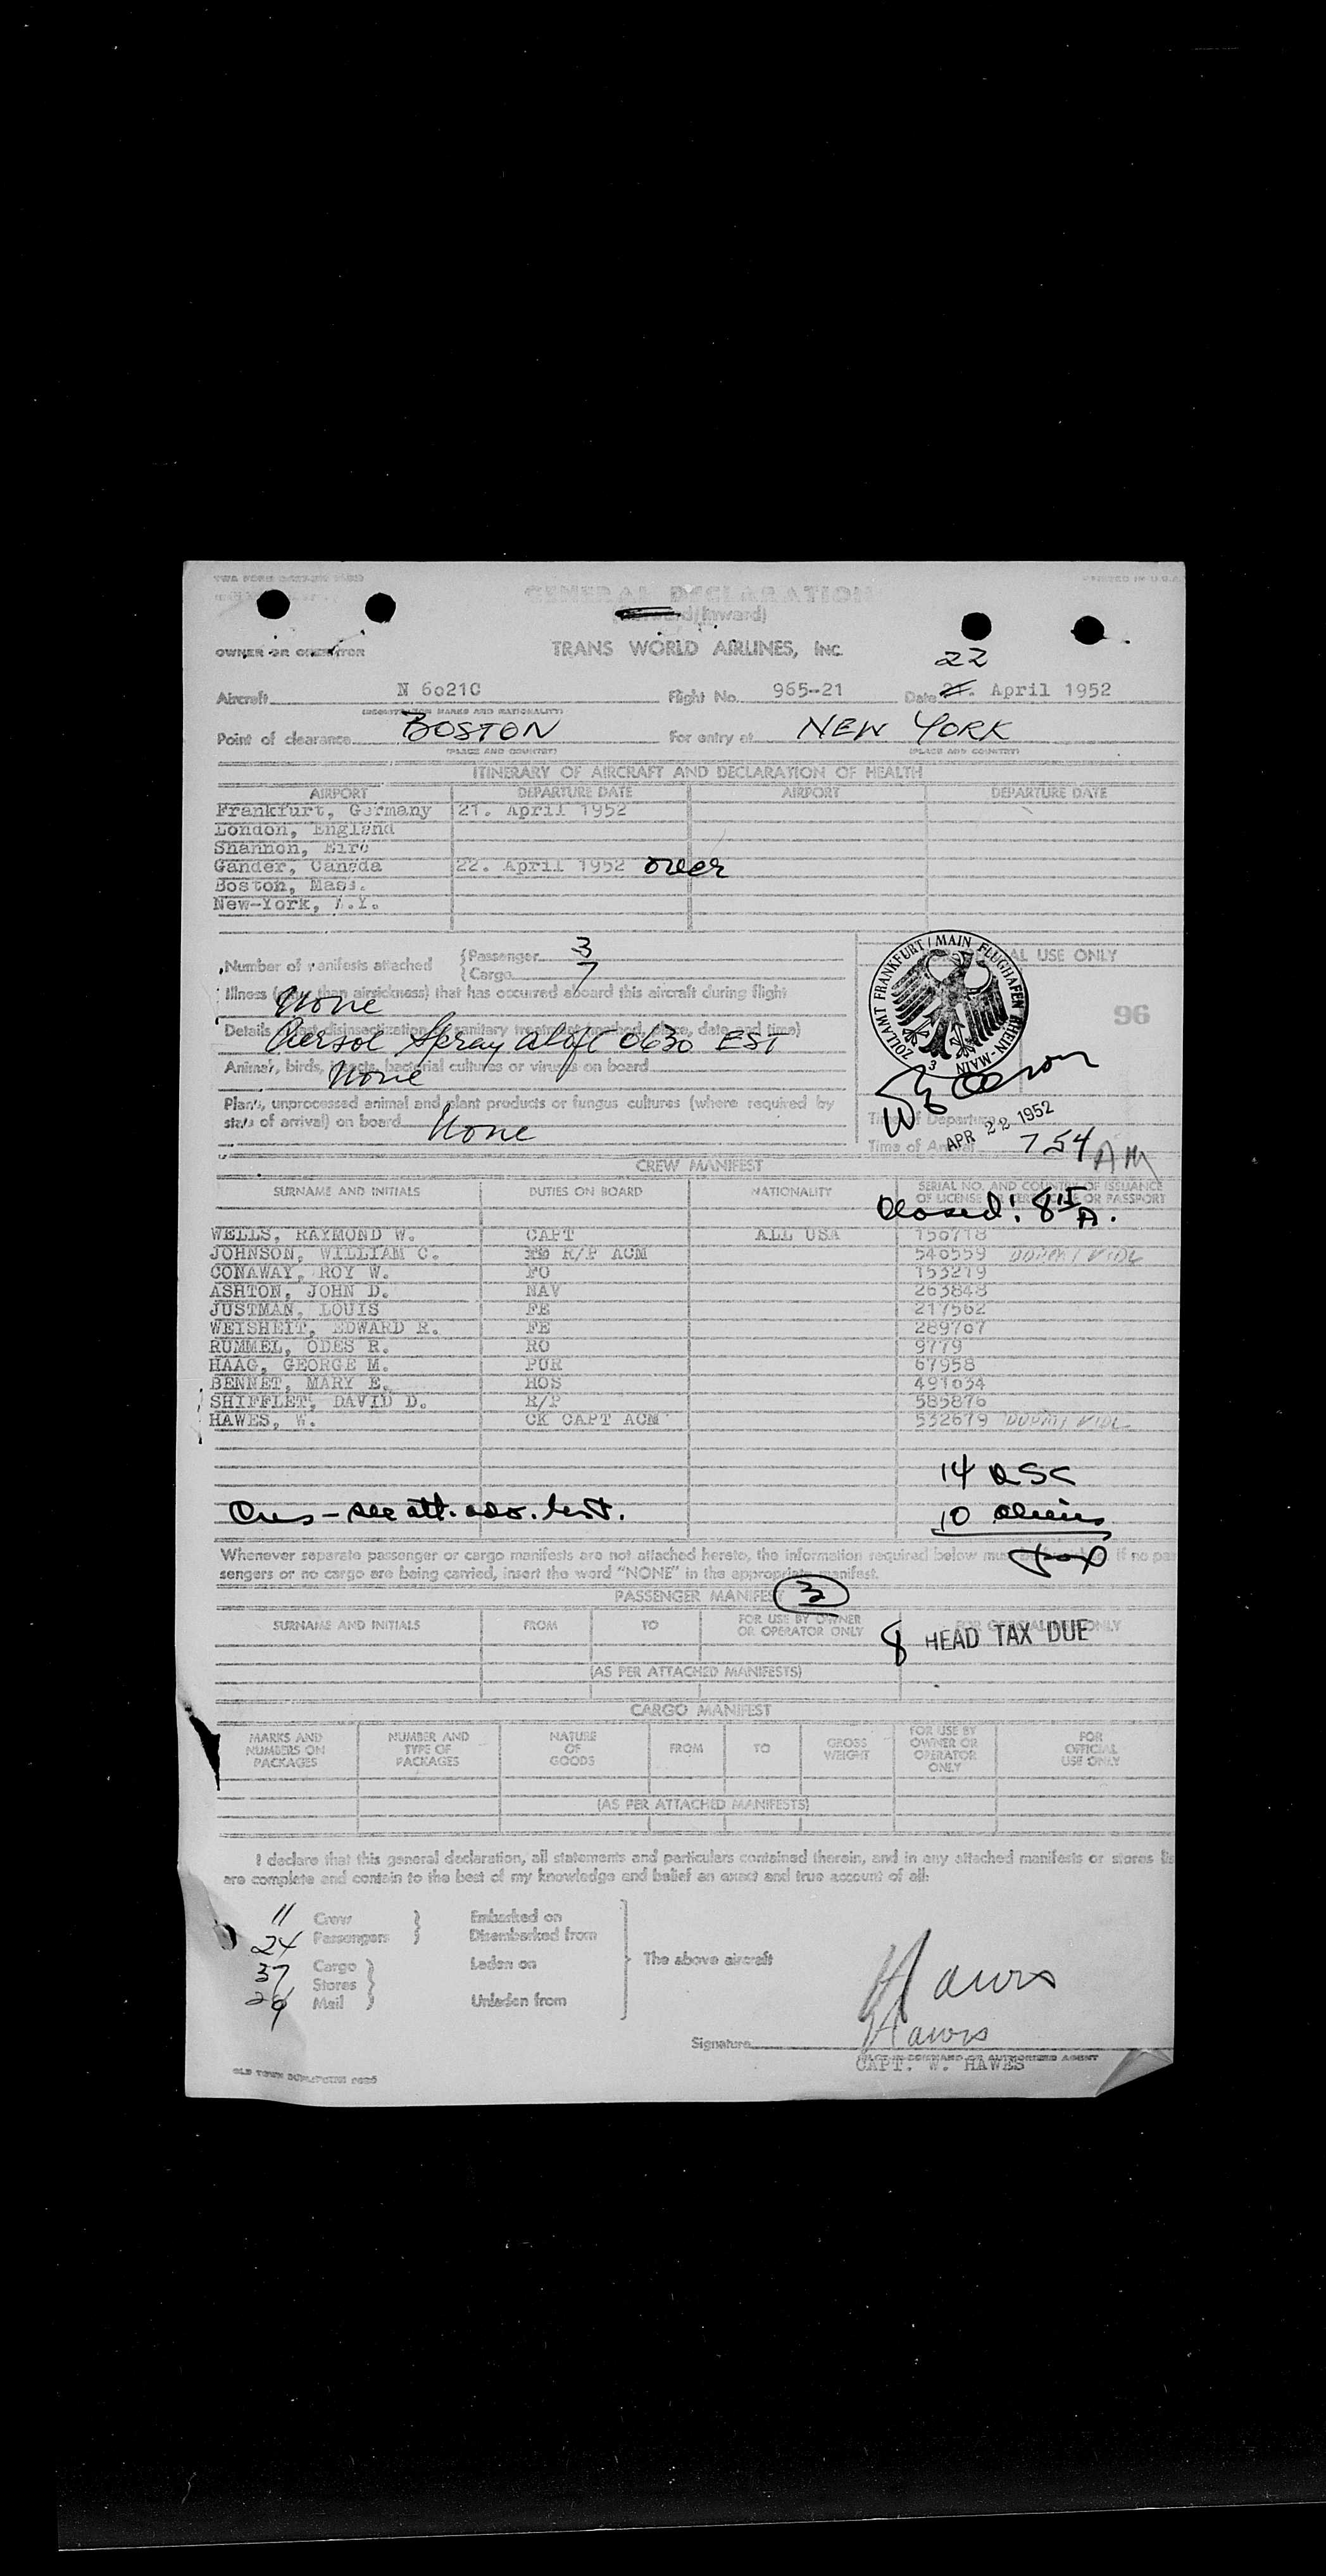 PRINTED IN U.S.A.
GENERAL DECLARATION
(Outward/Inward)
OWNER OR OPERATOR TRANS WORLD AIRLINES, INC.
22
Aircraft N 6021C Flight No. 965-21 Date 21. April 1952
(REGISTRATION MARKS AND NATIONALITY)
Point of clearance BOSTON For entry at NEW YORK
(PLACE AND COUNTRY) (PLACE AND COUNTRY)
ITINERARY OF AIRCRAFT AND DECLARATION OF HEALTH
AIRPORT DEPARTURE DATE AIRPORT DEPARTURE DATE
Frankfurt, Germany 21. April 1952
London, England
Shannon, Eire
Gander, Canada 22. April 1952 over
Boston, Mass.
New-York, N.Y.
Number of manifests attached {Passenger 3
{Cargo 7
USE ONLY
ZOLLAMT FRANKFURT/MAIN FLUGHAFEN RHEIN-MAIN
3
96
Illness (other than airsickness) that has occurred aboard this aircraft during flight
None
Details of last disinsectization or sanitary treatment (method, place, date and time)
Aersol Spray aloft 0630 EST
Animal, birds, insects, bacterial cultures or viruses on board
None
Plants, unprocessed animal and plant products or fungus cultures (where required by
state of arrival) on board None
Time of Departure
APR 22 1952
Time of Arrival 7 54 AM
CREW MANIFEST
SURNAME AND INITIALS DUTIES ON BOARD NATIONALITY SERIAL NO. AND COUNTRY OF ISSUANCE
OF LICENSE OR CERTIFICATE OR PASSPORT
Closed: 8 A.
WELLS, RAYMOND W. CAPT ALL USA 150718
JOHNSON, WILLIAM C. R/P ACM 540559
CONAWAY, ROY W. FO 153219
ASHTON, JOHN D. NAV 263848
JUSTMAN, LOUIS FE 217562
WEISHEIT, EDWARD R. FE 289707
RUMMEL, ODES R. RO 9779
HAAG, GEORGE M. PUR 67958
BENNET, MARY E. HOS 491034
SHIFFLET, DAVID D. R/P 585876
HAWES, W. CK CAPT ACM 532679
14 USC
Cus - see att. list.
10 aliens
Whenever separate passenger or cargo manifests are not attached hereto, the information required below must If no pas
sengers or no cargo are being carried, insert the word "NONE" in the appropriate manifest.
PASSENGER MANIFEST 3
SURNAME AND INITIALS FROM TO FOR USE BY OWNER
OR OPERATOR ONLY FOR OFFICIAL USE ONLY
8 HEAD TAX DUE
(AS PER ATTACHED MANIFESTS)
CARGO MANIFEST
MARKS AND
NUMBERS ON
PACKAGES NUMBER AND
TYPE OF
PACKAGES NATURE
OF
GOODS FROM TO GROSS
WEIGHT FOR USE BY
OWNER OR
OPERATOR
ONLY FOR
OFFICIAL
USE ONLY
(AS PER ATTACHED MANIFESTS)
I declare that this general declaration, all statements and particulars contained therein, and in any attached manifests or stores lis
are complete and contain to the best of my knowledge and belief an exact and true account of all:
11 Crew } Embarked on
24 Passengers } Disembarked from
37 Cargo } Laden on The above aircraft
Stores
Mail } Unladen from
Hawes
Hawes
Signature
CAPT. W. HAWES